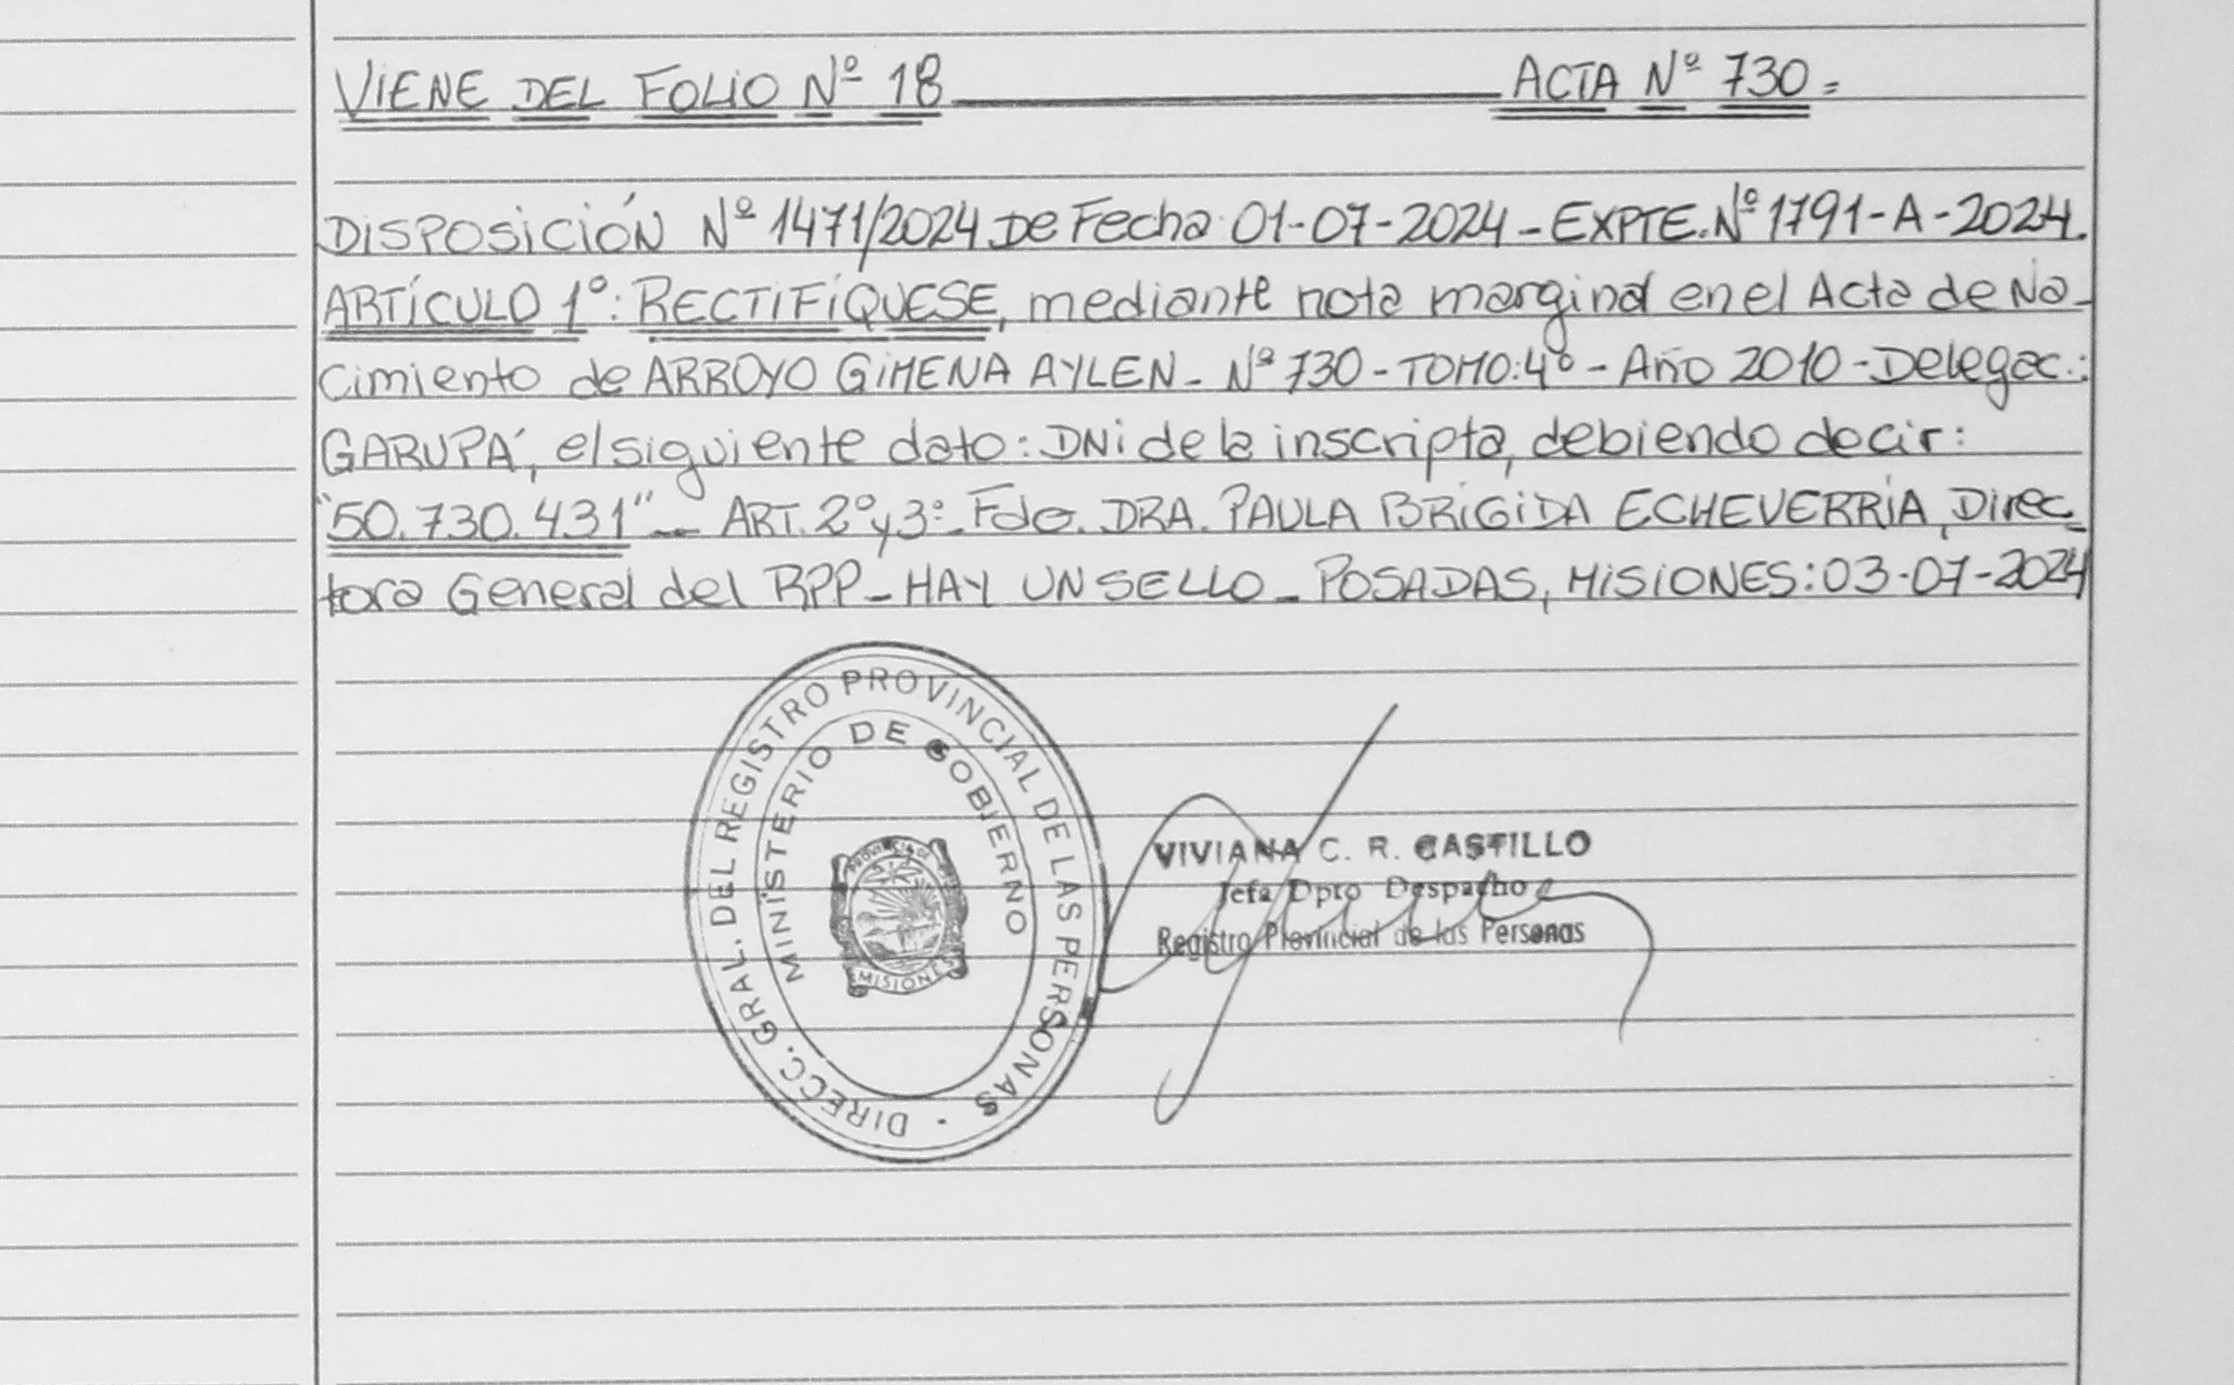 VIENE DEL FOLIO Nº 18 ACTA Nº 730=
DISPOSICIÓN Nº 1471/2024 DE Fecha 01-07-2024 - EXPTE. Nº 1791-A-2024.
ARTÍCULO 1º: RECTIFÍQUESE, mediante nota marginal en el Acta de Na-
cimiento de ARROYO GIMENA AYLEN - Nº 730 - TOMO: 4º - Año 2010 - Delegac.:
GARUPÁ, el siguiente dato: DNI de la inscripta, debiendo decir:
"50.730.431" - ART. 2º y 3º - Fdo. DRA. PAULA BRIGIDA ECHEVERRÍA, Direc-
tora General del RPP - HAY UN SELLO - POSADAS, MISIONES: 03-07-2024
DIRECC. GRAL. DEL REGISTRO PROVINCIAL DE LAS PERSONAS ·
MINISTERIO DE GOBIERNO
PROVINCIA DE
MISIONES
VIVIANA C. R. CASTILLO
Jefa Dpto Despacho
Registro Provincial de las Personas